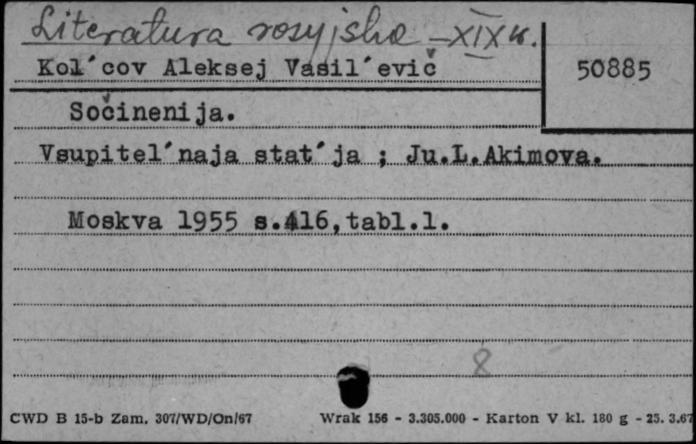 Literatura rosyjska – XIX w.
Kol´cov Aleksej Vasil´evič
50885
Sočinenija.
Vsupitel´naja stat´ja ; Ju.L.Akimova.
Moskva 1955 s.416,tabl.1.
8
CWD B 15-b Zam. 307/WD/On/67 Wrak 156 - 3.305.000 - Karton V kl. 180 g - 25. 3.67